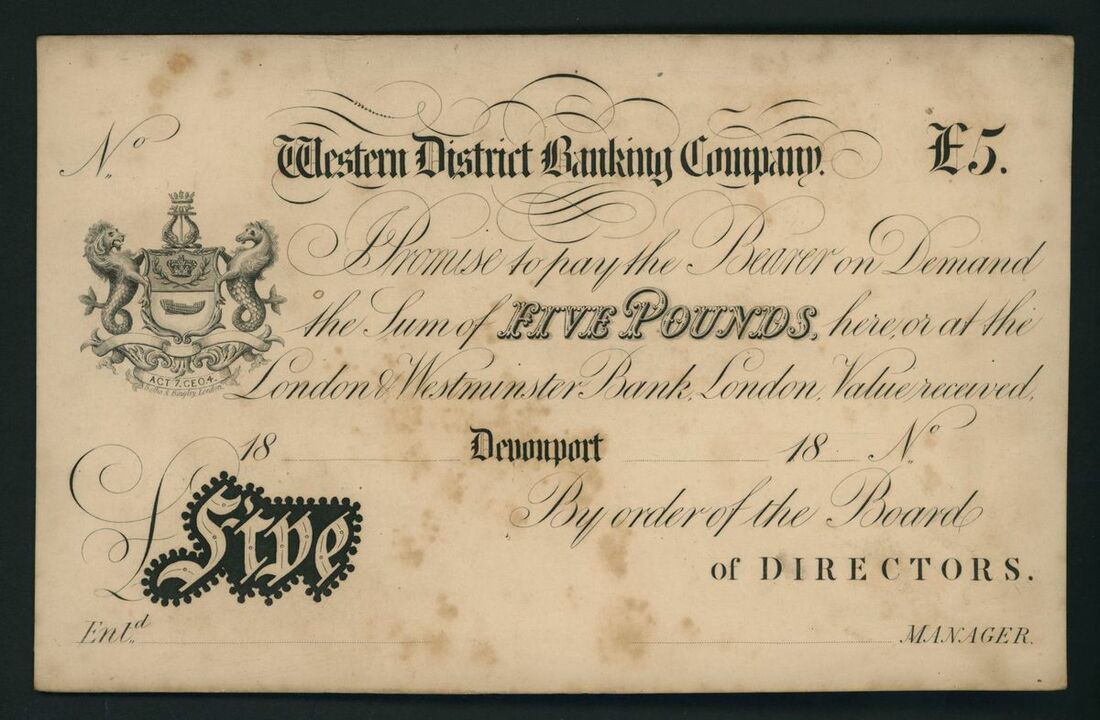 No
Western District Banking Company.
£5.
I Promise to pay the Bearer on Demand
the Sum of FIVE POUNDS, here, or at the
London & Westminster Bank, London, Value received,
ACT 7. GEO 4.
& Bingley, London
18 Devonport 18 No
£Five
By order of the Board
of DIRECTORS.
Entd MANAGER.